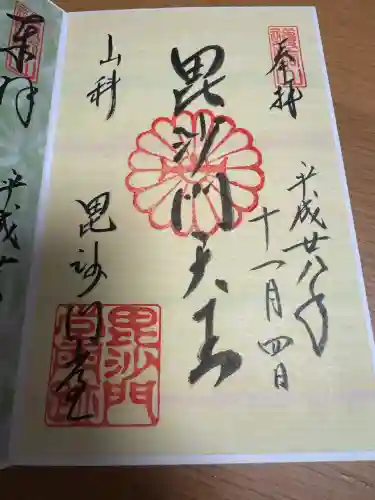 奉拝
平成廿八年
十一月四日
毘沙門天王
山科
毘沙門堂
毘沙門
奉拝
平成廿